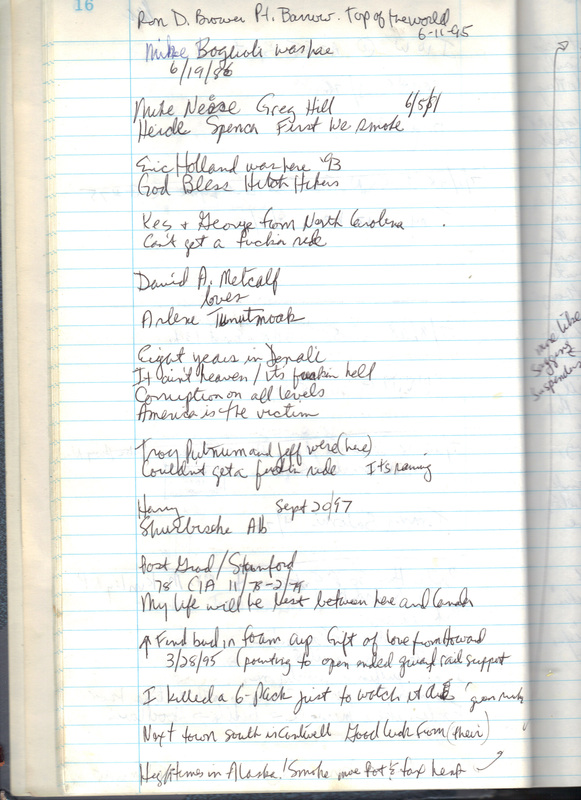 16
Ron D. Brower Pt. Barrow. Top of the world
6-11-95
Mike Bogliole was here
6/19/86
Mike Neese Greg Hill 6/5/81
Heide Spencr First We smoke
Eric Holland was here '93
God Bless Hitch Hikers
Kes + George from North Carolina
Can't get a fuckin ride
David A. Metcalf
loves
Arlene
Eight years in Denali
It ain't heaven / its fuckin hell
Corruption on all levels
America is the victim
Troy Putnum and Jeff were (here)
Couldn't get a fuckin ride Its raining
Harry Sept 20/97
Ab
Post Grad / Stanford
78 CIA 11/78-2/79
My life will be lost between here and Canada
↑ Find bud in foam cup Gift of love from Howard
3/28/95 (pointing to open ended guard rail support
I killed a 6-Pack just to watch it die
Next town south is Cantwell Good luck From (their)
High times in Alaska! Smoke more Pot &
more like
sagging
suspenders